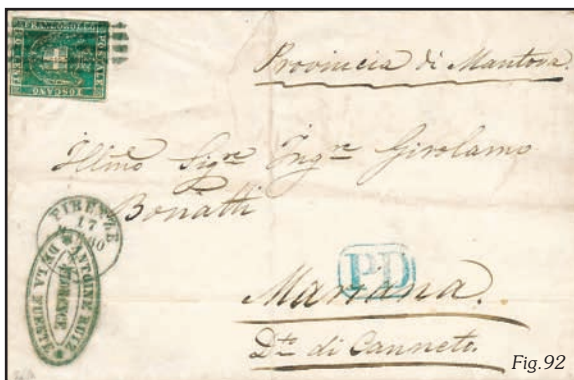 FRANCOBOLLO
POSTALE
TOSCANO
Provincia di Mantova.
Illmo Sigre Ingre Girolamo
Bonatti
FIRENZE
17
ANTOINE RUIZ
DE LA
FLORENCE
PD
Mariana.
Dto di Canneto.
Fig.92